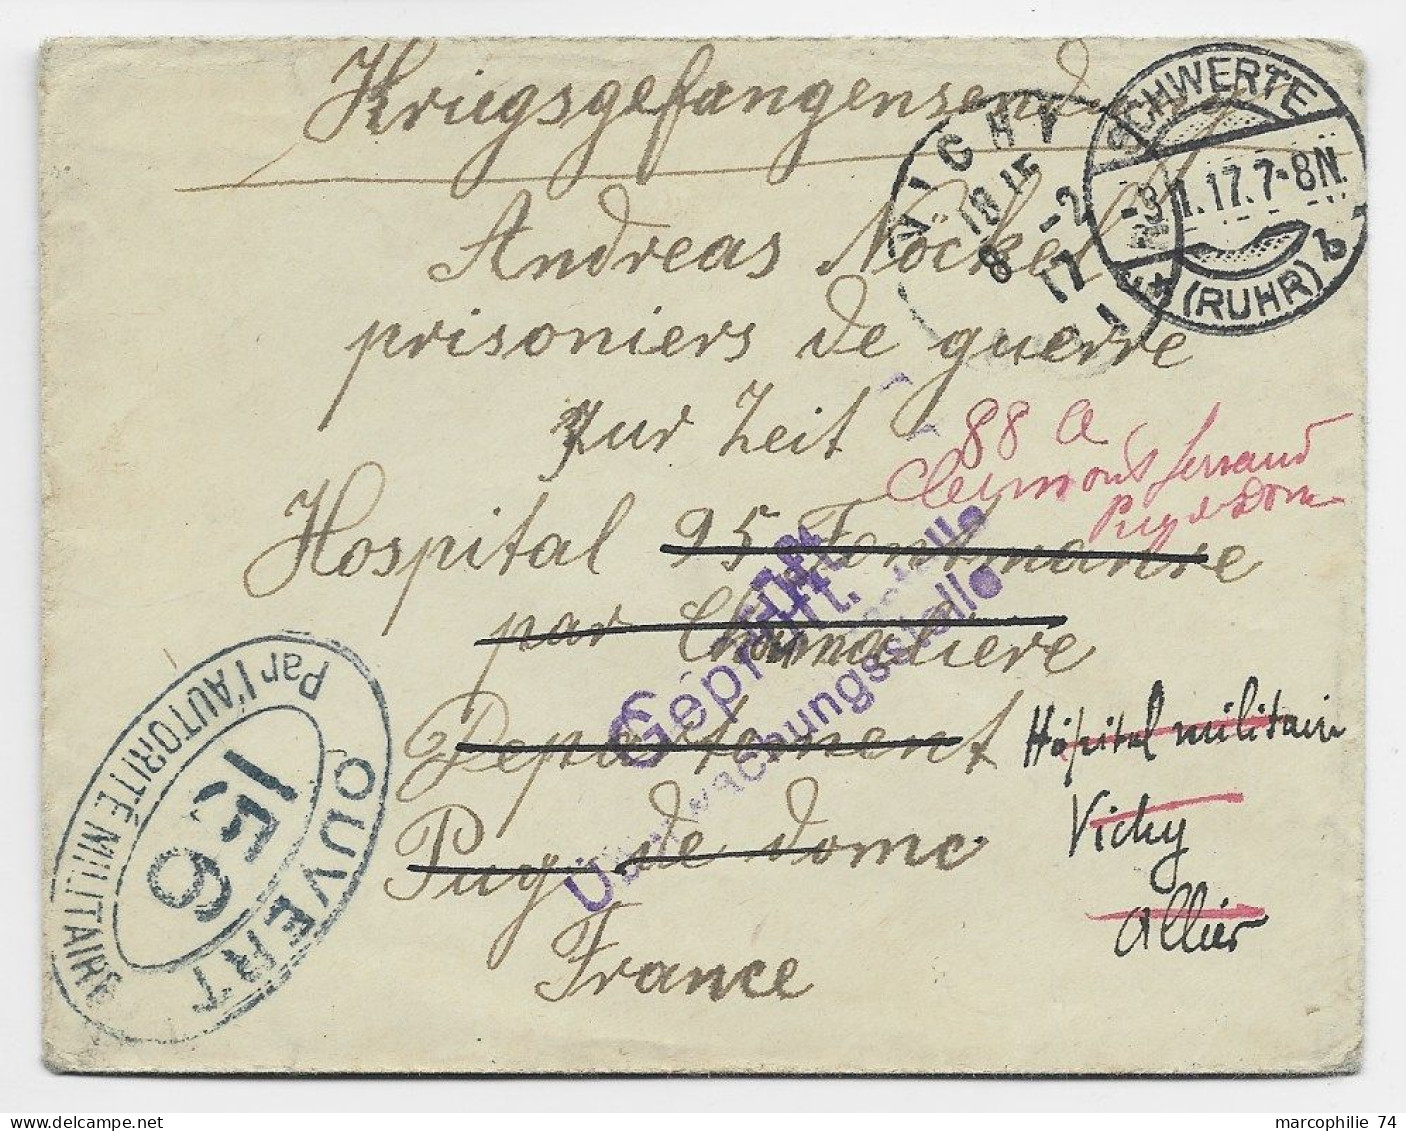 Kriegsgefangensend
Andreas Nöckel
prisoniers de guerre
zur Zeit
Hospital 95 Fontmaure
par Chamaliere
Departement
Puy de dome
France
88 a
Clermont Ferrand
Puy de Dome
Hôpital militaire
Vichy
Allier
SCHWERTE
-3.1.17.7-8N.
* (RUHR) b
VICHY
18 15
8 -2
17
Geprüft.
Überwachungsstelle
OUVERT
Par l'AUTORITÉ MILITAIRE
156
marcophilie 74